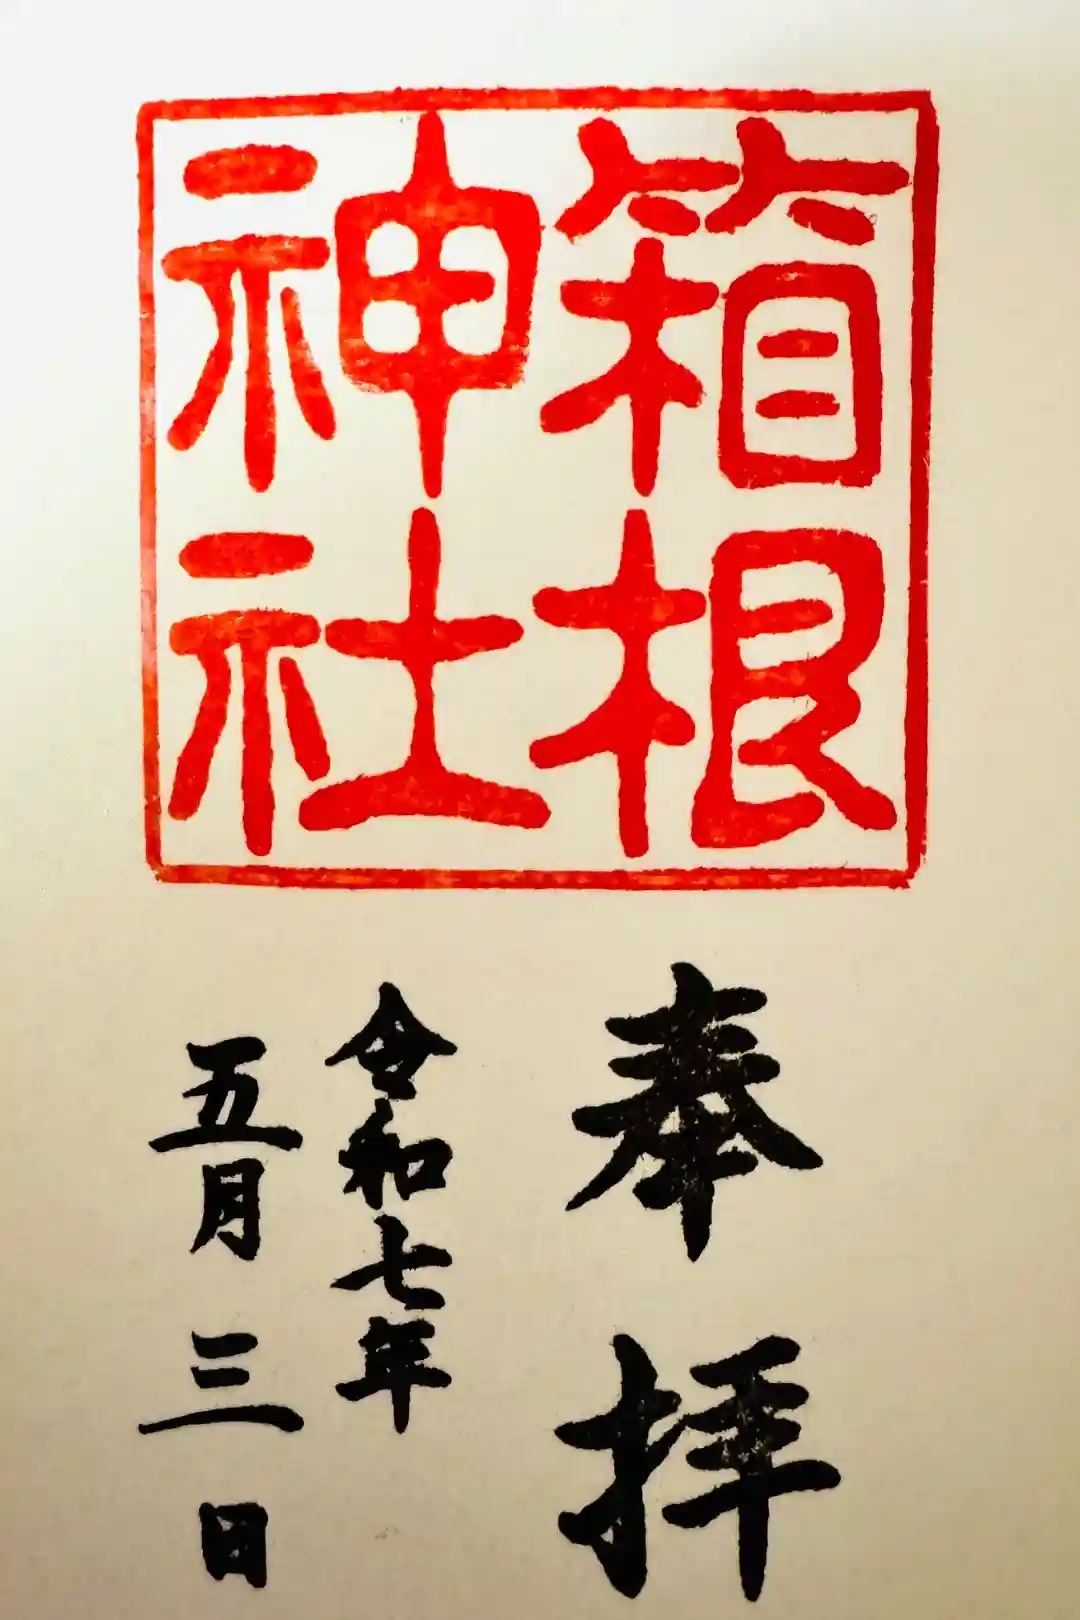 箱根
神社
奉拝
令和七年
五月三日